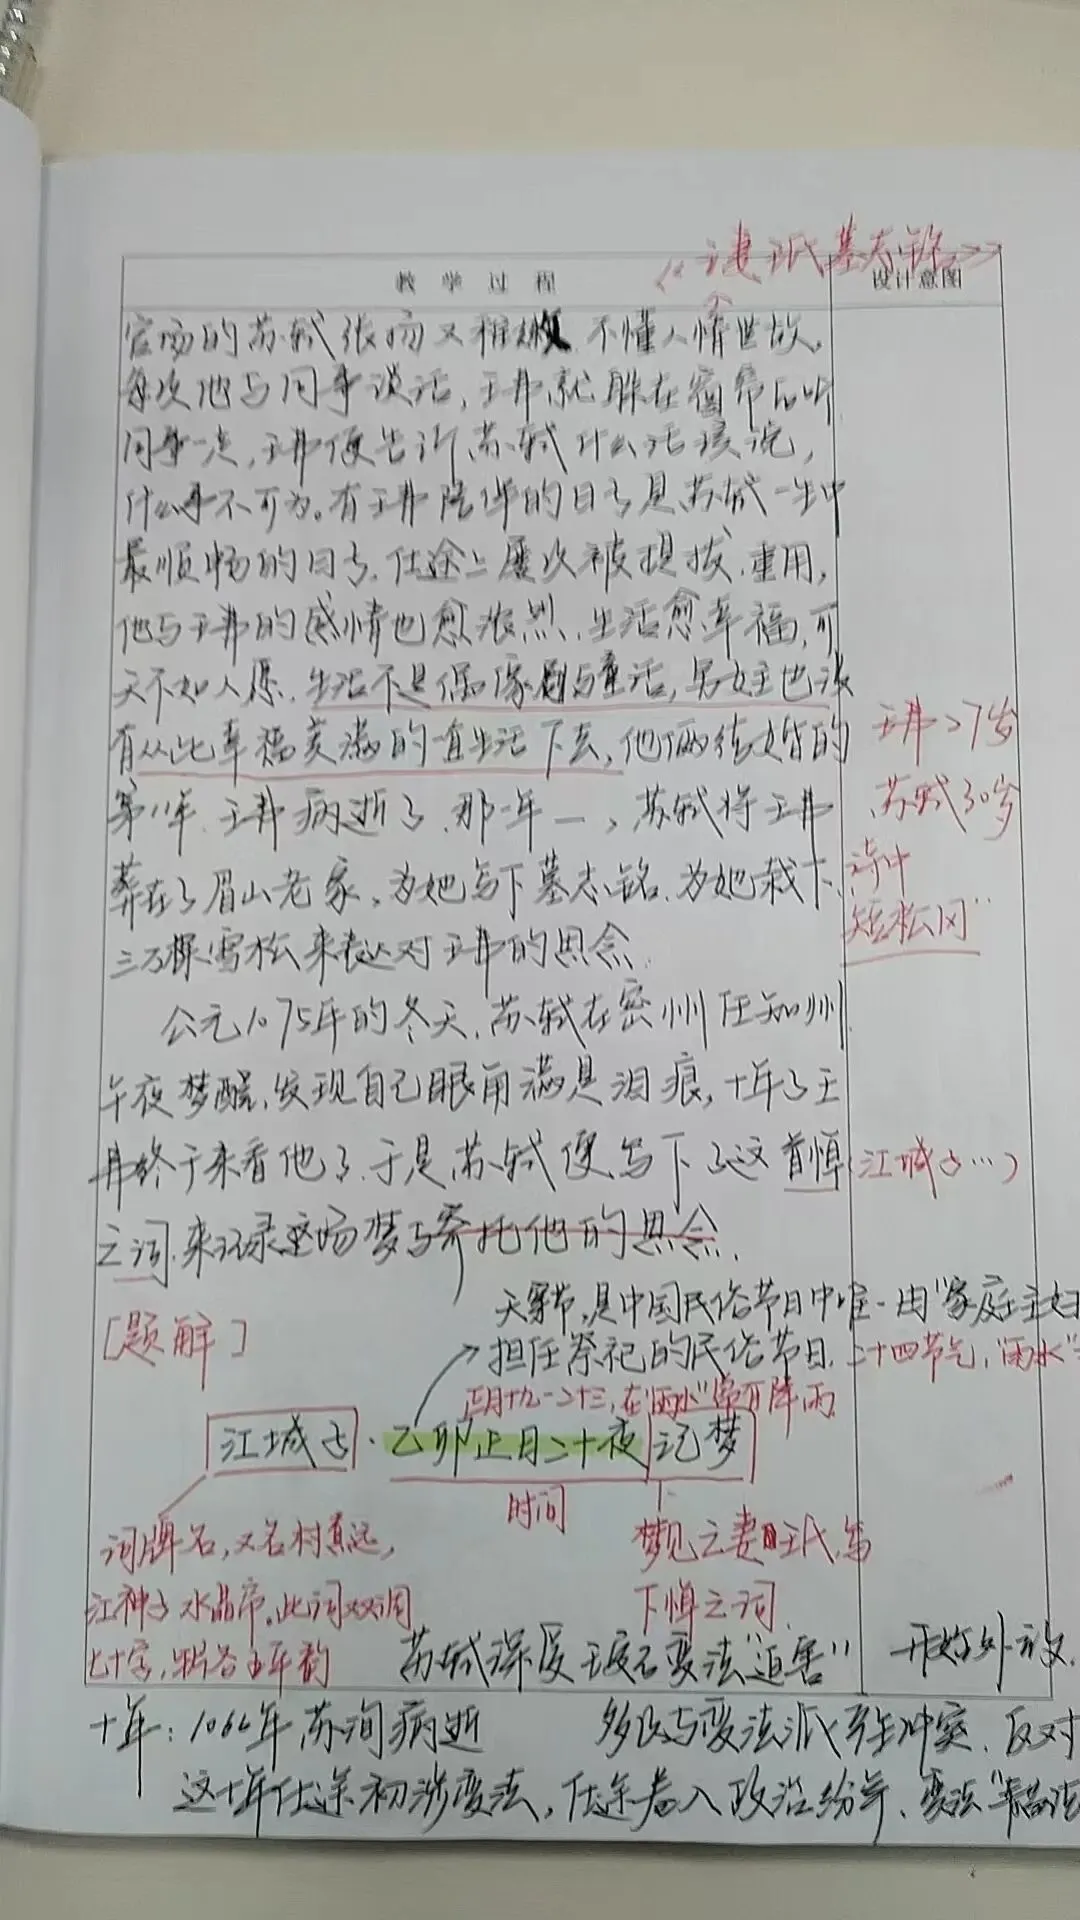 《亡妻王氏墓志铭》
教学过程
设计意图
官场的苏轼张扬又稚嫩,不懂人情世故,
每次他与同事谈话,王弗就躲在窗帘后听
同事一走,王弗便告诉苏轼什么话该说,
什么事不可为。有王弗陪伴的日子是苏轼一生中
最顺畅的日子,仕途上屡次被提拔、重用,
他与王弗的感情也愈浓烈,生活愈幸福,可
天不如人愿,生活不是偶像剧与童话,男女主也没
有从此幸福美满的一直生活下去,他俩结婚的
第11年,王弗病逝了,那一年一,苏轼将王弗
葬在了眉山老家,为她写下墓志铭,为她栽下
三万棵雪松来表达对王弗的思念
王弗27岁
苏轼30岁
诗中
短松冈”
公元1075年的冬天,苏轼在密州任知州,
午夜梦醒,发现自己眼角满是泪痕,十年了王
弗终于来看他了,于是苏轼便写下了这首悼
(江城子…)
亡词,来记录这场梦与寄托他的思念,
[题解]
天穿节,是中国民俗节日中唯一由“家庭主妇
担任祭祀的民俗节日,二十四节气,“雨水”
正月十九-二十三,在“雨水”常有降雨
江城子·乙卯正月二十夜记梦
时间
词牌名,又名村意远,
江神子 水晶帘。此词双调
七十字,片各五平韵
梦见亡妻王氏,写
下悼亡词,
苏轼深受王安石变法“迫害” 开始外放,
十年:1066年 苏洵病逝
多次与变法派产生冲突,反对
这十年仕途初涉变法,仕途卷入政治纷争、变法